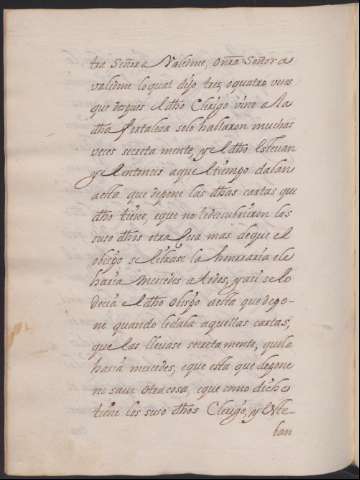 tra Señora Valedme, o nro Señor a
valedme lo qual dijo tres, o quatro veces
que despues el dho Clerigo vino a la
dha fortaleza solo hablaron muchas
veces secreta mente, y el dho Estevan
y Antonio aquel tiempo daban
a ella que depone las dhas cartas que
dho tiene, e que no le descubrieron los
suso dhos otra cosa mas de que el
obispo se la honraria e le
haria mercedes a ellos, y asi se lo
decia el dho obispo a esta que depo-
ne quando le daba aquellas cartas,
que las llevase secreta mente, que le
haria mercedes, e que esta que depone
no save otra cosa, e que como dicho
tiene los suso dhos Clerigo, y Este-
ban